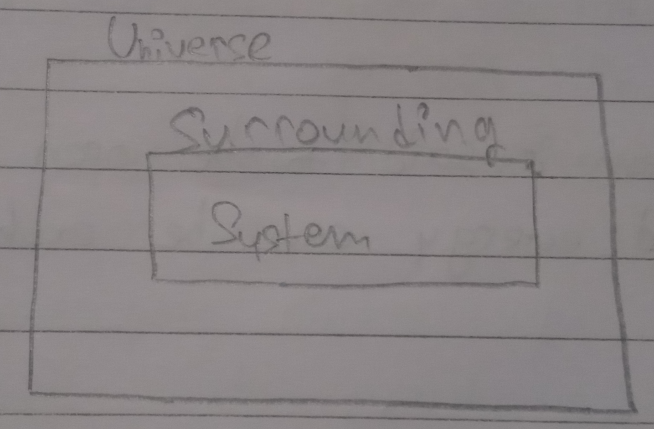 Universe
Surrounding
System